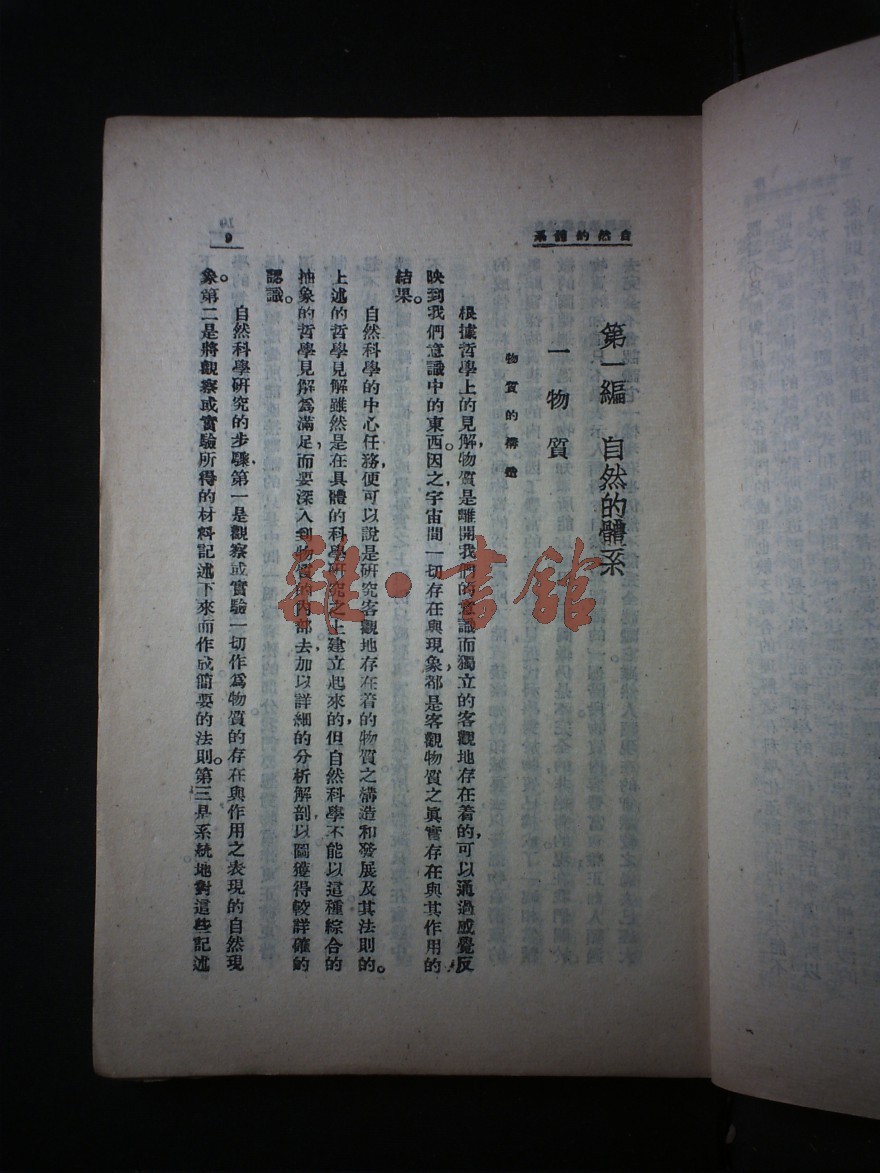 自然的體系
9
第一編 自然的體系
一 物質
物質的構造
根據哲學上的見解,物質是離開我們的意識而獨立的客觀地存在着的,可以通過感覺反
映到我們意識中的東西。因之,宇宙間一切存在與現象,都是客觀物質之眞實存在與其作用的
結果。
自然科學的中心任務,便可以說是研究客觀地存在着的物質之構造和發展及其法則的。
上述的哲學見解雖然是在具體的科學研究之上建立起來的,但自然科學不能以這種綜合的
抽象的哲學見解爲滿足,而要深入到物質的內部去加以詳細的分析解剖以圖獲得較詳確的
認識。
自然科學研究的步驟,第一是觀察或實驗一切作爲物質的存在與作用之表現的自然現
象。第二是將觀察或實驗所得的材料記述下來而作成簡要的法則。第三是系統地對這些記述
雜·書館